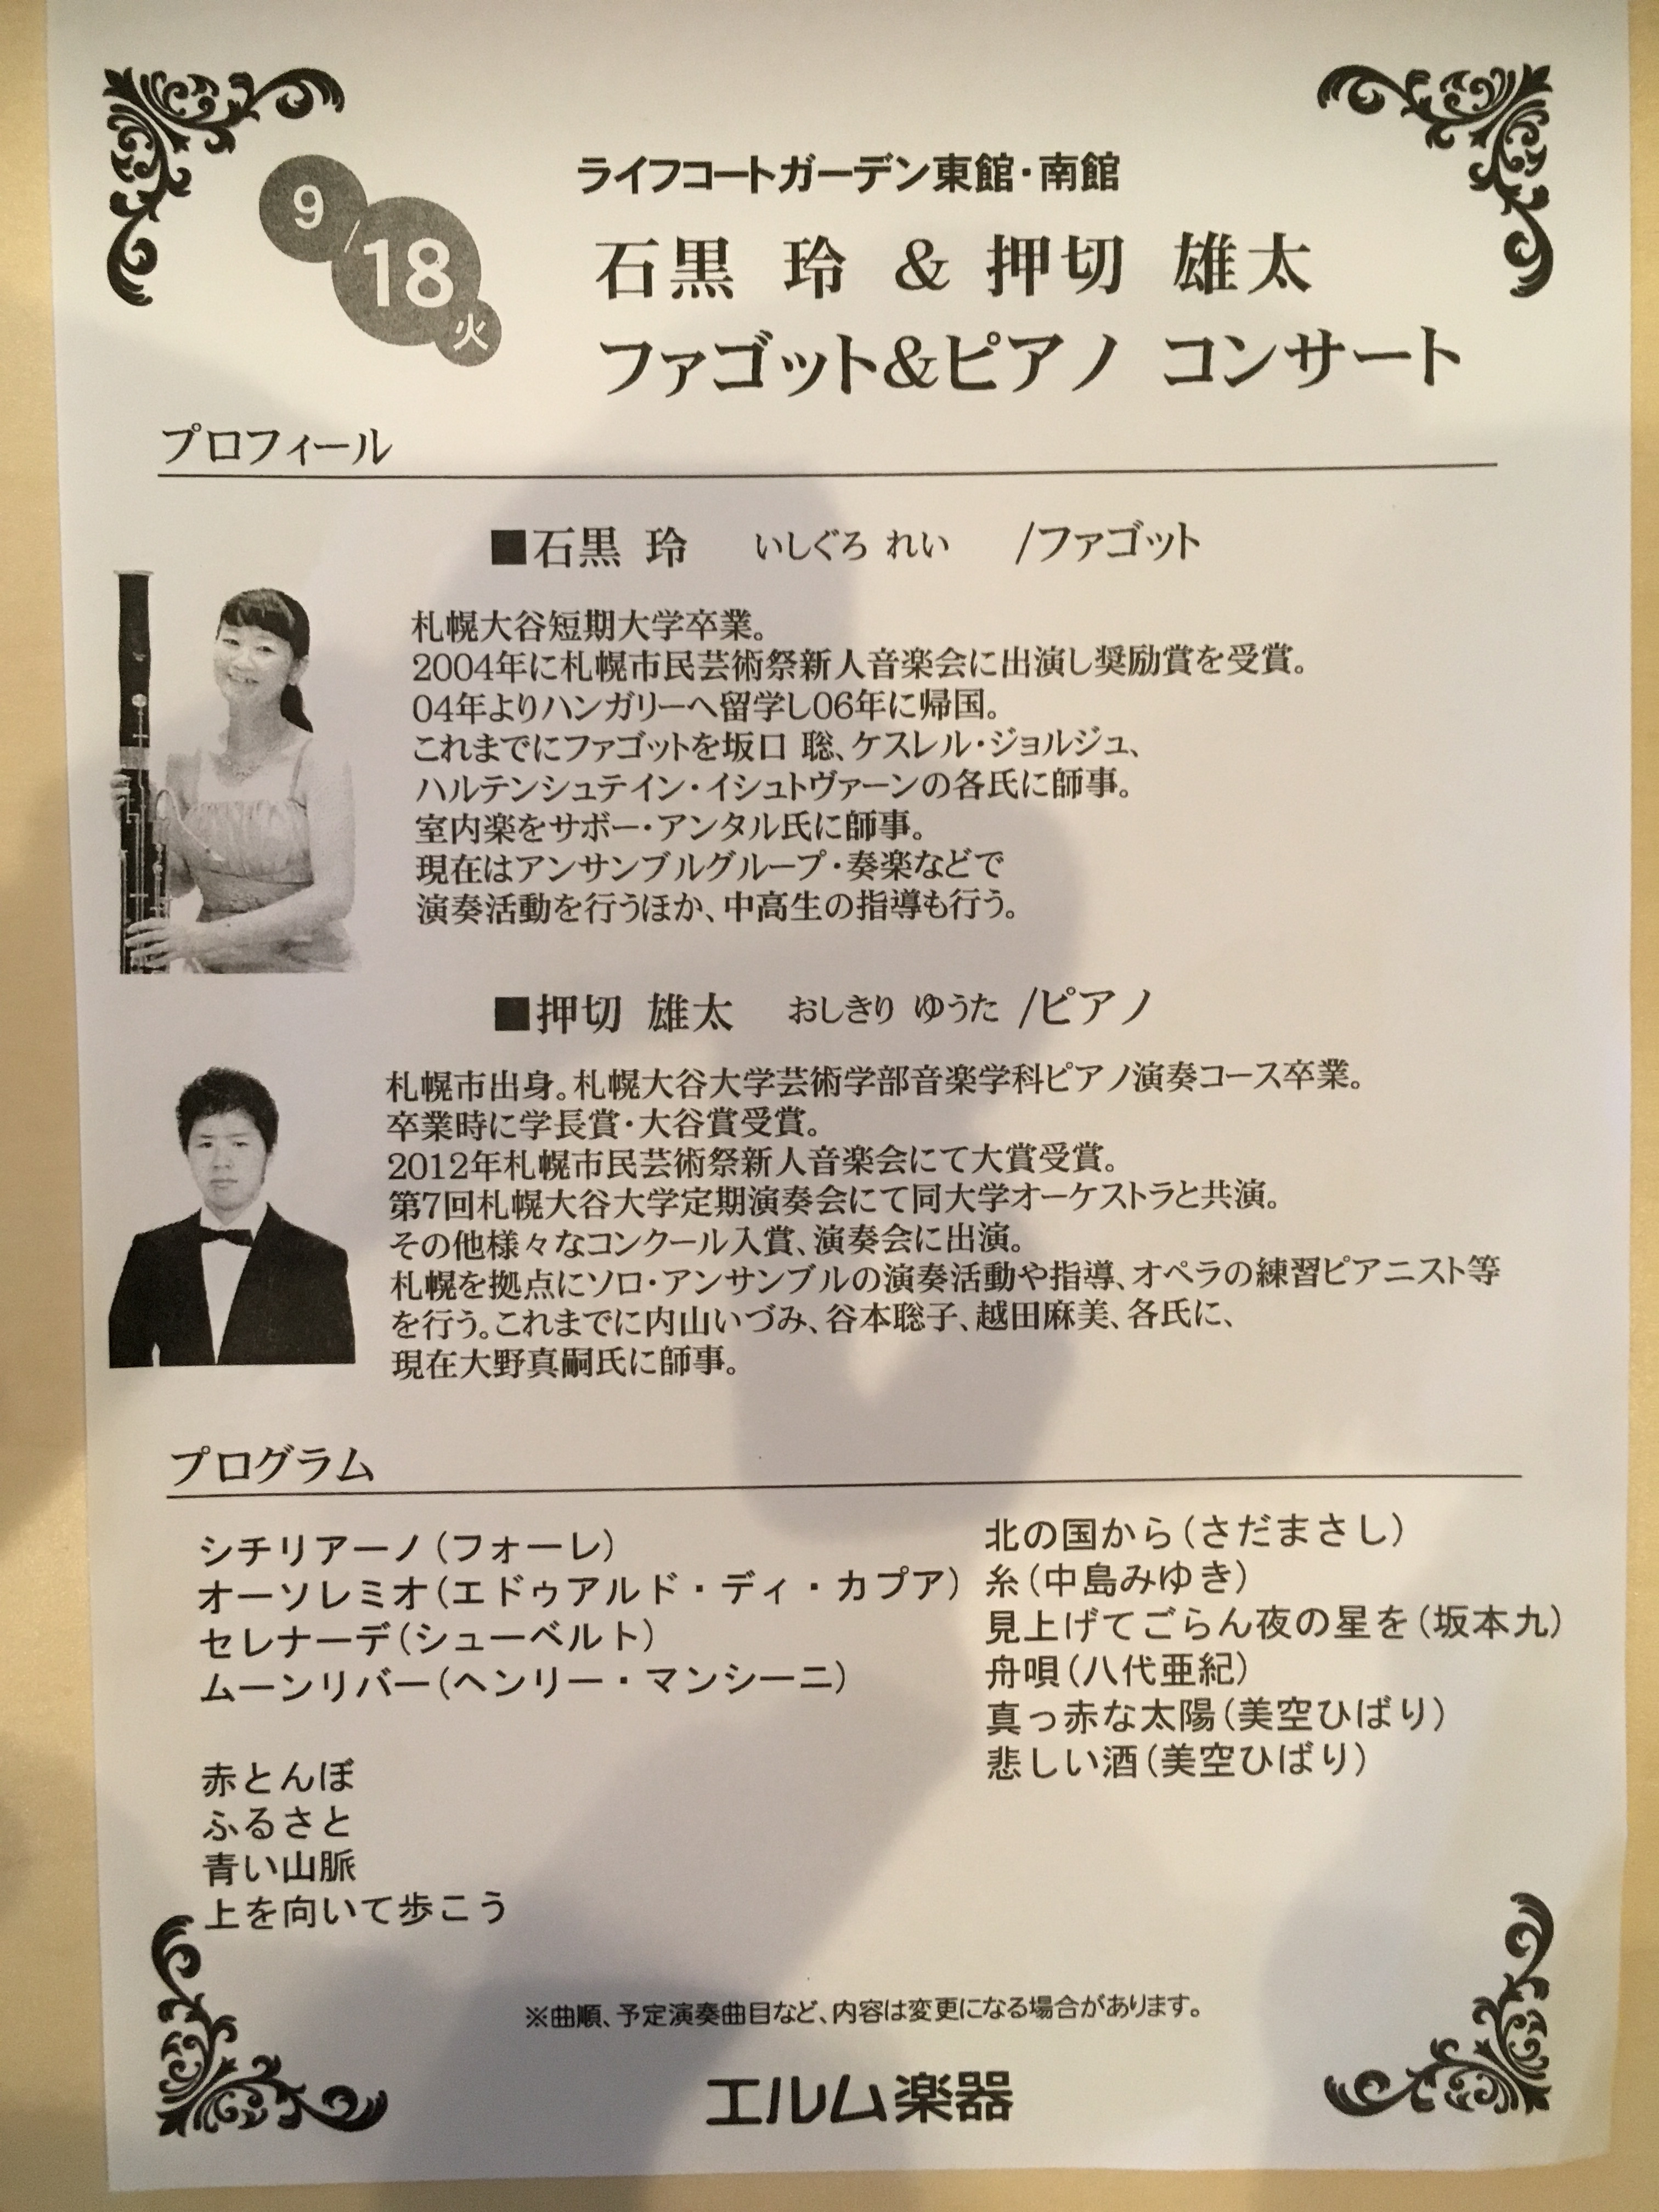 9/18火
ライフコートガーデン東館・南館
石黒 玲 & 押切 雄太
ファゴット&ピアノ コンサート
プロフィール
■石黒 玲 いしぐろ れい /ファゴット
札幌大谷短期大学卒業。
2004年に札幌市民芸術祭新人音楽会に出演し奨励賞を受賞。
04年よりハンガリーへ留学し06年に帰国。
これまでにファゴットを坂口 聡、ケスレル・ジョルジュ、
ハルテンシュテイン・イシュトヴァーンの各氏に師事。
室内楽をサボー・アンタル氏に師事。
現在はアンサンブルグループ・奏楽などで
演奏活動を行うほか、中高生の指導も行う。
■押切 雄太 おしきり ゆうた /ピアノ
札幌市出身。札幌大谷大学芸術学部音楽学科ピアノ演奏コース卒業。
卒業時に学長賞・大谷賞受賞。
2012年札幌市民芸術祭新人音楽会にて大賞受賞。
第7回札幌大谷大学定期演奏会にて同大学オーケストラと共演。
その他様々なコンクール入賞、演奏会に出演。
札幌を拠点にソロ・アンサンブルの演奏活動や指導、オペラの練習ピアニスト等
を行う。これまでに内山いづみ、谷本聡子、越田麻美、各氏に、
現在大野真嗣氏に師事。
プログラム
シチリアーノ(フォーレ)
オーソレミオ(エドゥアルド・ディ・カプア)
セレナーデ(シューベルト)
ムーンリバー(ヘンリー・マンシーニ)
赤とんぼ
ふるさと
青い山脈
上を向いて歩こう
北の国から(さだまさし)
糸(中島みゆき)
見上げてごらん夜の星を(坂本九)
舟唄(八代亜紀)
真っ赤な太陽(美空ひばり)
悲しい酒(美空ひばり)
※曲順、予定演奏曲目など、内容は変更になる場合があります。
エルム楽器